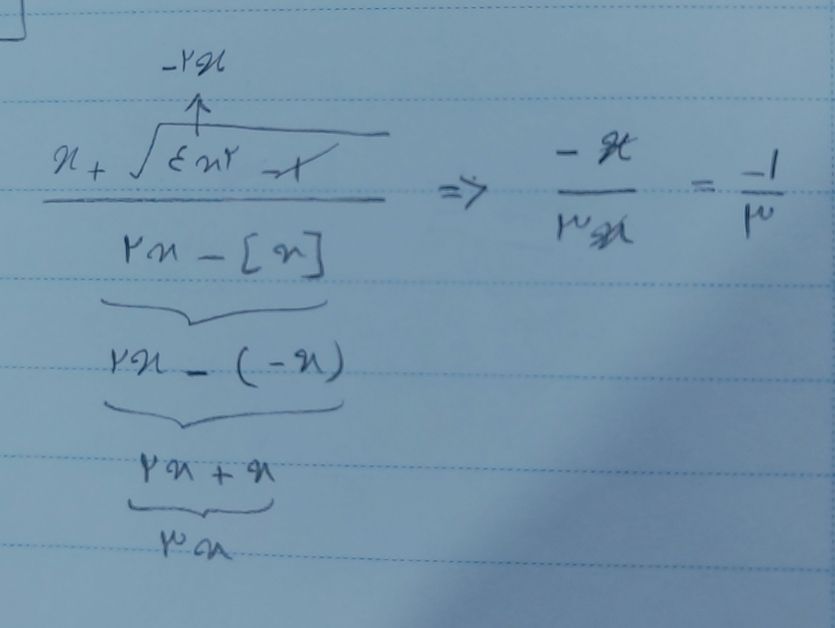 -۲x
↑
x + √(۴x۲ - x) / ۲x - [x] => -x / ۳x = -۱ / ۳
۲x - (-x)
۲x + x
۳x